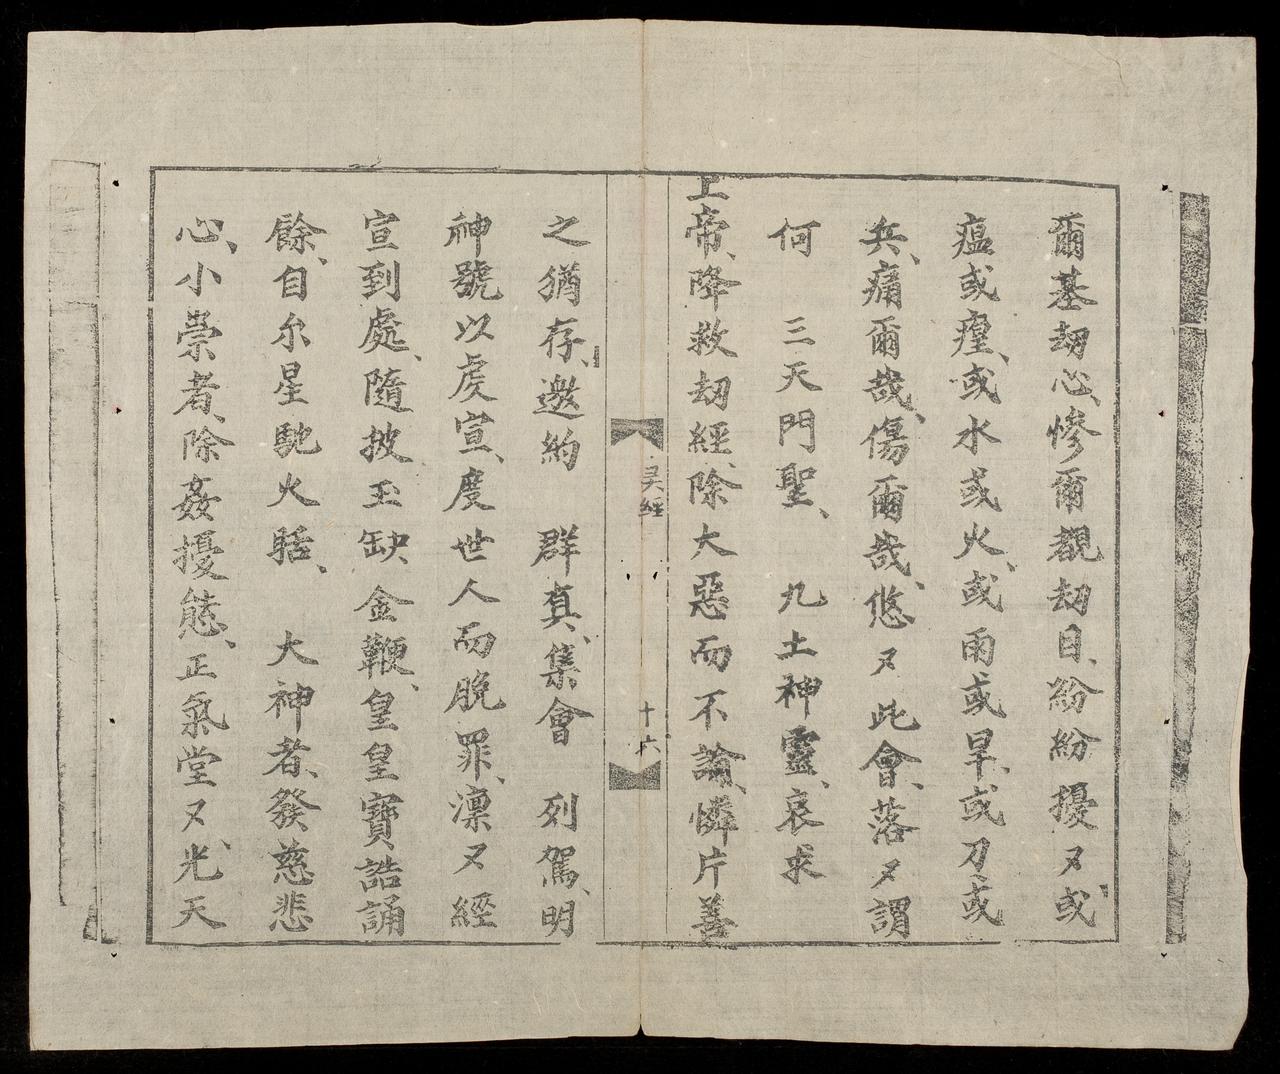 爾基劫心、慘爾觀劫目、紛紛擾又或
瘟或瘴、或水或火、或雨或旱、或刀或
兵、痛爾哉、傷爾哉、悠又此會、落又謂
何　三天門聖、　九土神靈、哀求
上帝、降救劫經、除大惡而不論、憐片善
灵經
十六
之猶存、邀約　群真、集會　列駕、明
神號以虔宣、度世人而脫罪、凛又經
宣到處、隨披玉缺金鞭、皇皇寶誥誦
餘、自尔星馳火聒、　大神者、發慈悲
心、小祟者、除姦擾態、正氣堂又、光天